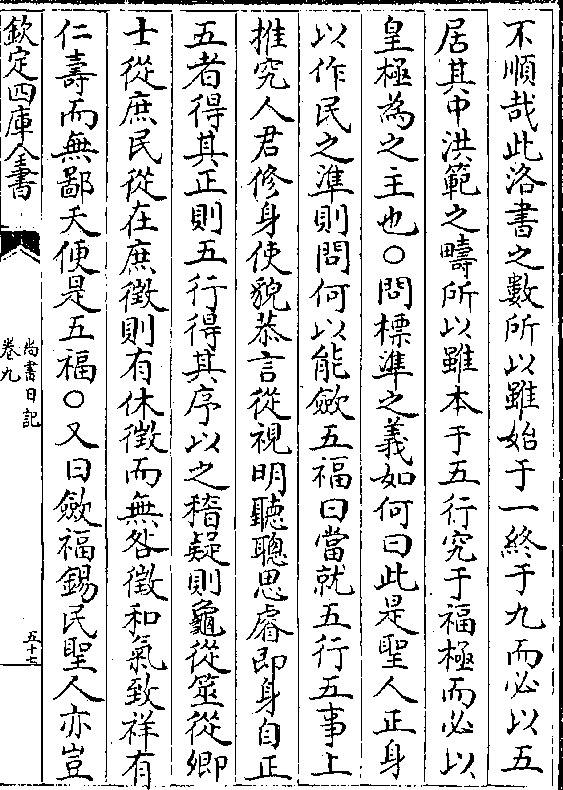 不順哉此洛書之數所以雖始于一終于九而必以五
居其中洪範之疇所以雖本于五行究于福極而必以
皇極為之主也○問標準之義如何曰此是聖人正身
以作民之準則問何以能斂五福曰當就五行五事上
推究人君修身使貌恭言從視明聽聰思睿即身自正
五者得其正則五行得其序以之稽疑則龜從筮從卿
士從庶民從在庶徵則有休徵而無咎徵和氣致祥有
仁壽而無鄙夭便是五福○又曰斂福錫民聖人亦豈
欽定四庫全書
尚書日記
卷九
五十七